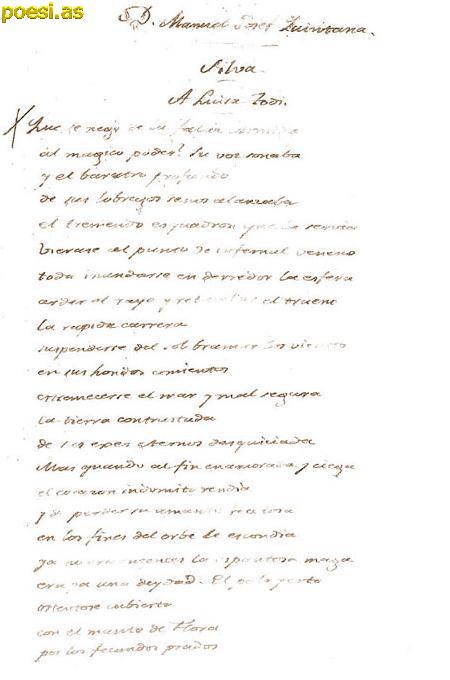 poesi.as
D. Manuel Josef Quintana.
Silva
A Luisa Todi.
Que se nego de su
al magico poder? Su voz sonaba
y el baratro profundo
de sus lobregos senos alanzaba
el tremendo esquadron que la servia
vierase al punto de infernal veneno
toda inundarse en derredor la esfera
arder el rayo y retumbar el trueno
la rapida carrera
suspenderse del sol bramar los vientos
en sus hondos cimientos
estremecerse el mar y mal segura
la tierra contrastada
de sus exes eternos desquiciada
Mas quando al fin enamorada y ciega
el corazon indomito rendia
y de perder su amante
en los fines del orbe le escondia
ya no era entonces la espantosa maga
era ya una deydad. El polo yerto
cubierto
con el manto de Flora
por los fecundos prados